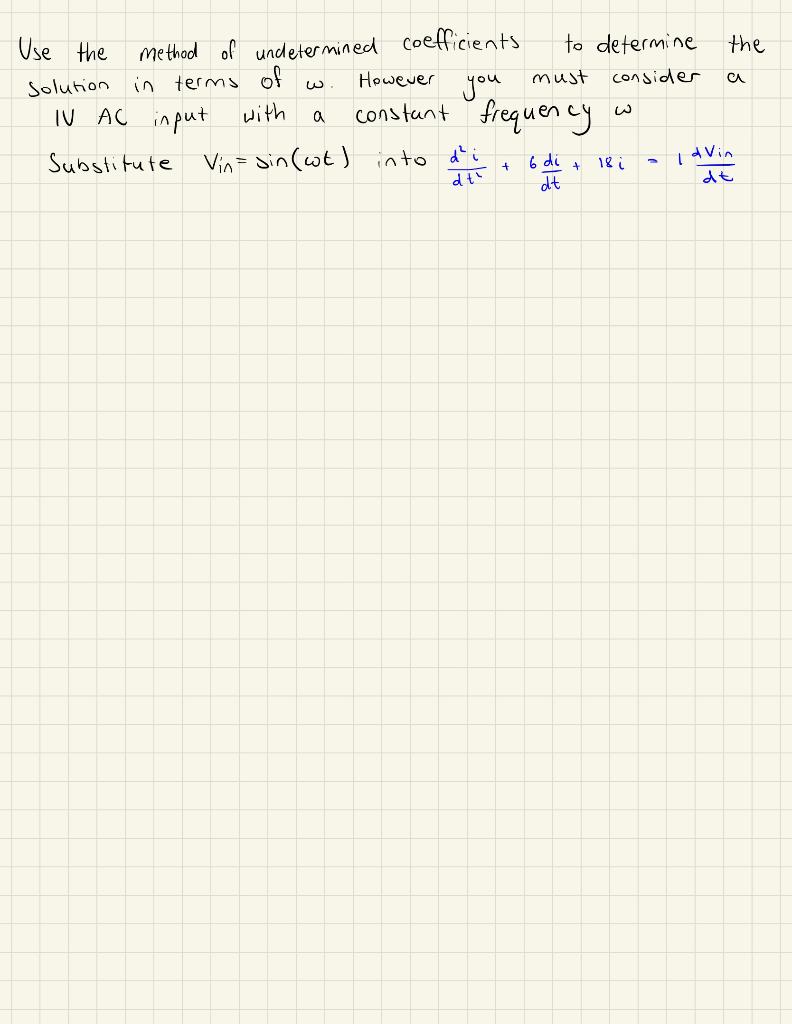 Use the method of undetermined coefficients to determine the
solution in terms of ω. However you must consider a
1V AC input with a constant frequency ω
Substitute Vin = sin(ωt) into d²i/dt² + 6 di/dt + 18i = 1 dVin/dt